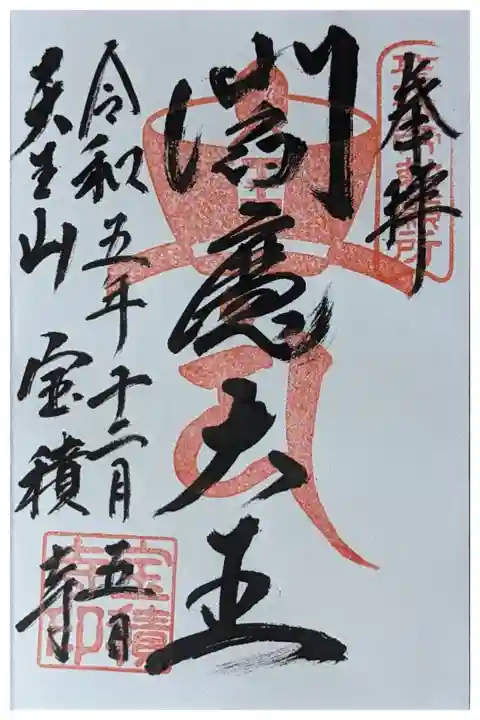 奉拝
閻魔大王
令和五年十二月五日
天王山 宝積寺
宝積寺印